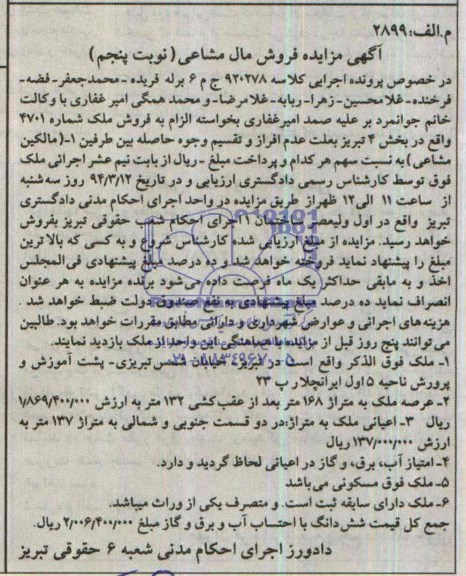 م.الف:۲۸۹۹
آگهی مزایده فروش مال مشاعی (نوبت پنجم)
در خصوص پرونده اجرایی کلاسه ۹۲۰۲۷۸ ج م ۶ برله فریده -محمدجعفر- فضه-
فرخنده- غلامحسین- زهرا- ربابه- غلامرضا- و محمد همگی امیر غفاری با وکالت
خانم جوانمرد بر علیه صمد امیرغفاری بخواسته الزام به فروش ملک شماره ۴۷۰۱
واقع در بخش ۴ تبریز بعلت عدم افراز و تقسیم وجوه حاصله بین طرفین ۱-(مالکین
مشاعی) به نسبت سهم هر کدام و پرداخت مبلغ -ریال از بابت نیم عشر اجرائی ملک
فوق توسط کارشناس رسمی دادگستری ارزیابی و در تاریخ ۹۴/۳/۱۲ روز سه شنبه
از ساعت ۱۱ الی ۱۲ ظهر از طریق مزایده در واحد اجرای احکام مدنی دادگستری
تبریز واقع در اول ولیعصر ساختمان اجرای احکام شعب حقوقی تبریز بفروش
خواهد رسید. مزایده از مبلغ ارزیابی شده کارشناس شروع و به کسی که بالاترین
مبلغ را پیشنهاد نماید فروخته خواهد شد. و ده درصد مبلغ پیشنهادی فی المجلس
اخذ و به مابقی حداکثر یک ماه فرصت داده می شود برنده مزایده به هر عنوان
انصراف نماید ده درصد مبلغ پیشنهادی به نفع صندوق دولت ضبط خواهد شد .
هزینه های اجرائی و عوارض شهرداری و دارائی مطابق مقررات خواهد بود. طالبین
می توانند پنج روز قبل از مزایده با هماهنگی این واحد از ملک بازدید نمایند.
۱- ملک فوق الذکر واقع است در تبریز- خیابان شمس تبریزی- پشت آموزش و
پرورش ناحیه ۵ اول ایرانچلار پ ۲۳
۲- عرصه ملک به متراژ ۱۶۸ متر بعد از عقب کشی ۱۳۲ متر به ارزش ۱/۸۶۹/۴۰۰/۰۰۰
ریال ۳- اعیانی ملک به متراژ:در دو قسمت جنوبی و شمالی به متراژ ۱۳۷ متر به
ارزش ۱۳۷/۰۰۰/۰۰۰ ریال
۴- امتیاز آب، برق، و گاز در اعیانی لحاظ گردید و دارد.
۵- ملک فوق مسکونی می باشد
۶- ملک دارای سابقه ثبت است. و متصرف یکی از وراث میباشد.
جمع کل قیمت شش دانگ با احتساب آب و برق و گاز مبلغ ۲/۰۰۶/۴۰۰/۰۰۰ ریال.
دادورز اجرای احکام مدنی شعبه ۶ حقوقی تبریز